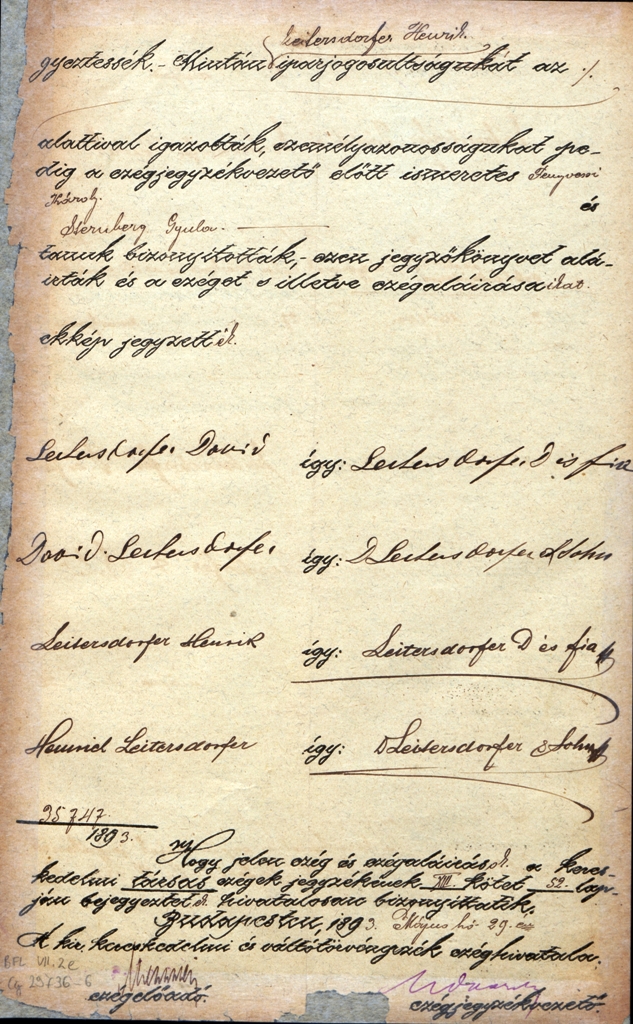 Leitersdorfer Henrik
gyeztessék. - Miután iparjogosultságukat az ./.
alattival igazolták, személyazonosságukat pe-
dig a czégjegyzékvezető előtt ismeretes Fenyvesi
Károly és
Sternberg Gyula
tanuk bizonyitották, - ezen jegyzőkönyvet alá-
irták és a czéget s illetve czégaláirásaikat
ekkép jegyzették.
Leitersdorfer David így: Leitersdorfer D és fia
David Leitersdorfer így: D Leitersdorfer & Sohn
Leitersdorfer Henrik így: Leitersdorfer D és fia
Heinrich Leitersdorfer így: D Leitersdorfer & Sohn
35747
1893.
Hogy jelen czég és czégaláirások a keres-
kedelmi társas czégek jegyzékének XIII. kötet 52. lap-
ján bejegyeztettek hivatalosan bizonyittatik.
Budapesten, 1893. Május hó 29-én
A kir. kereskedelmi és váltótörvényszék czéghivatala:
BFL VII.2e
Cg 29736-6
czégelőadó. czégjegyzékvezető.